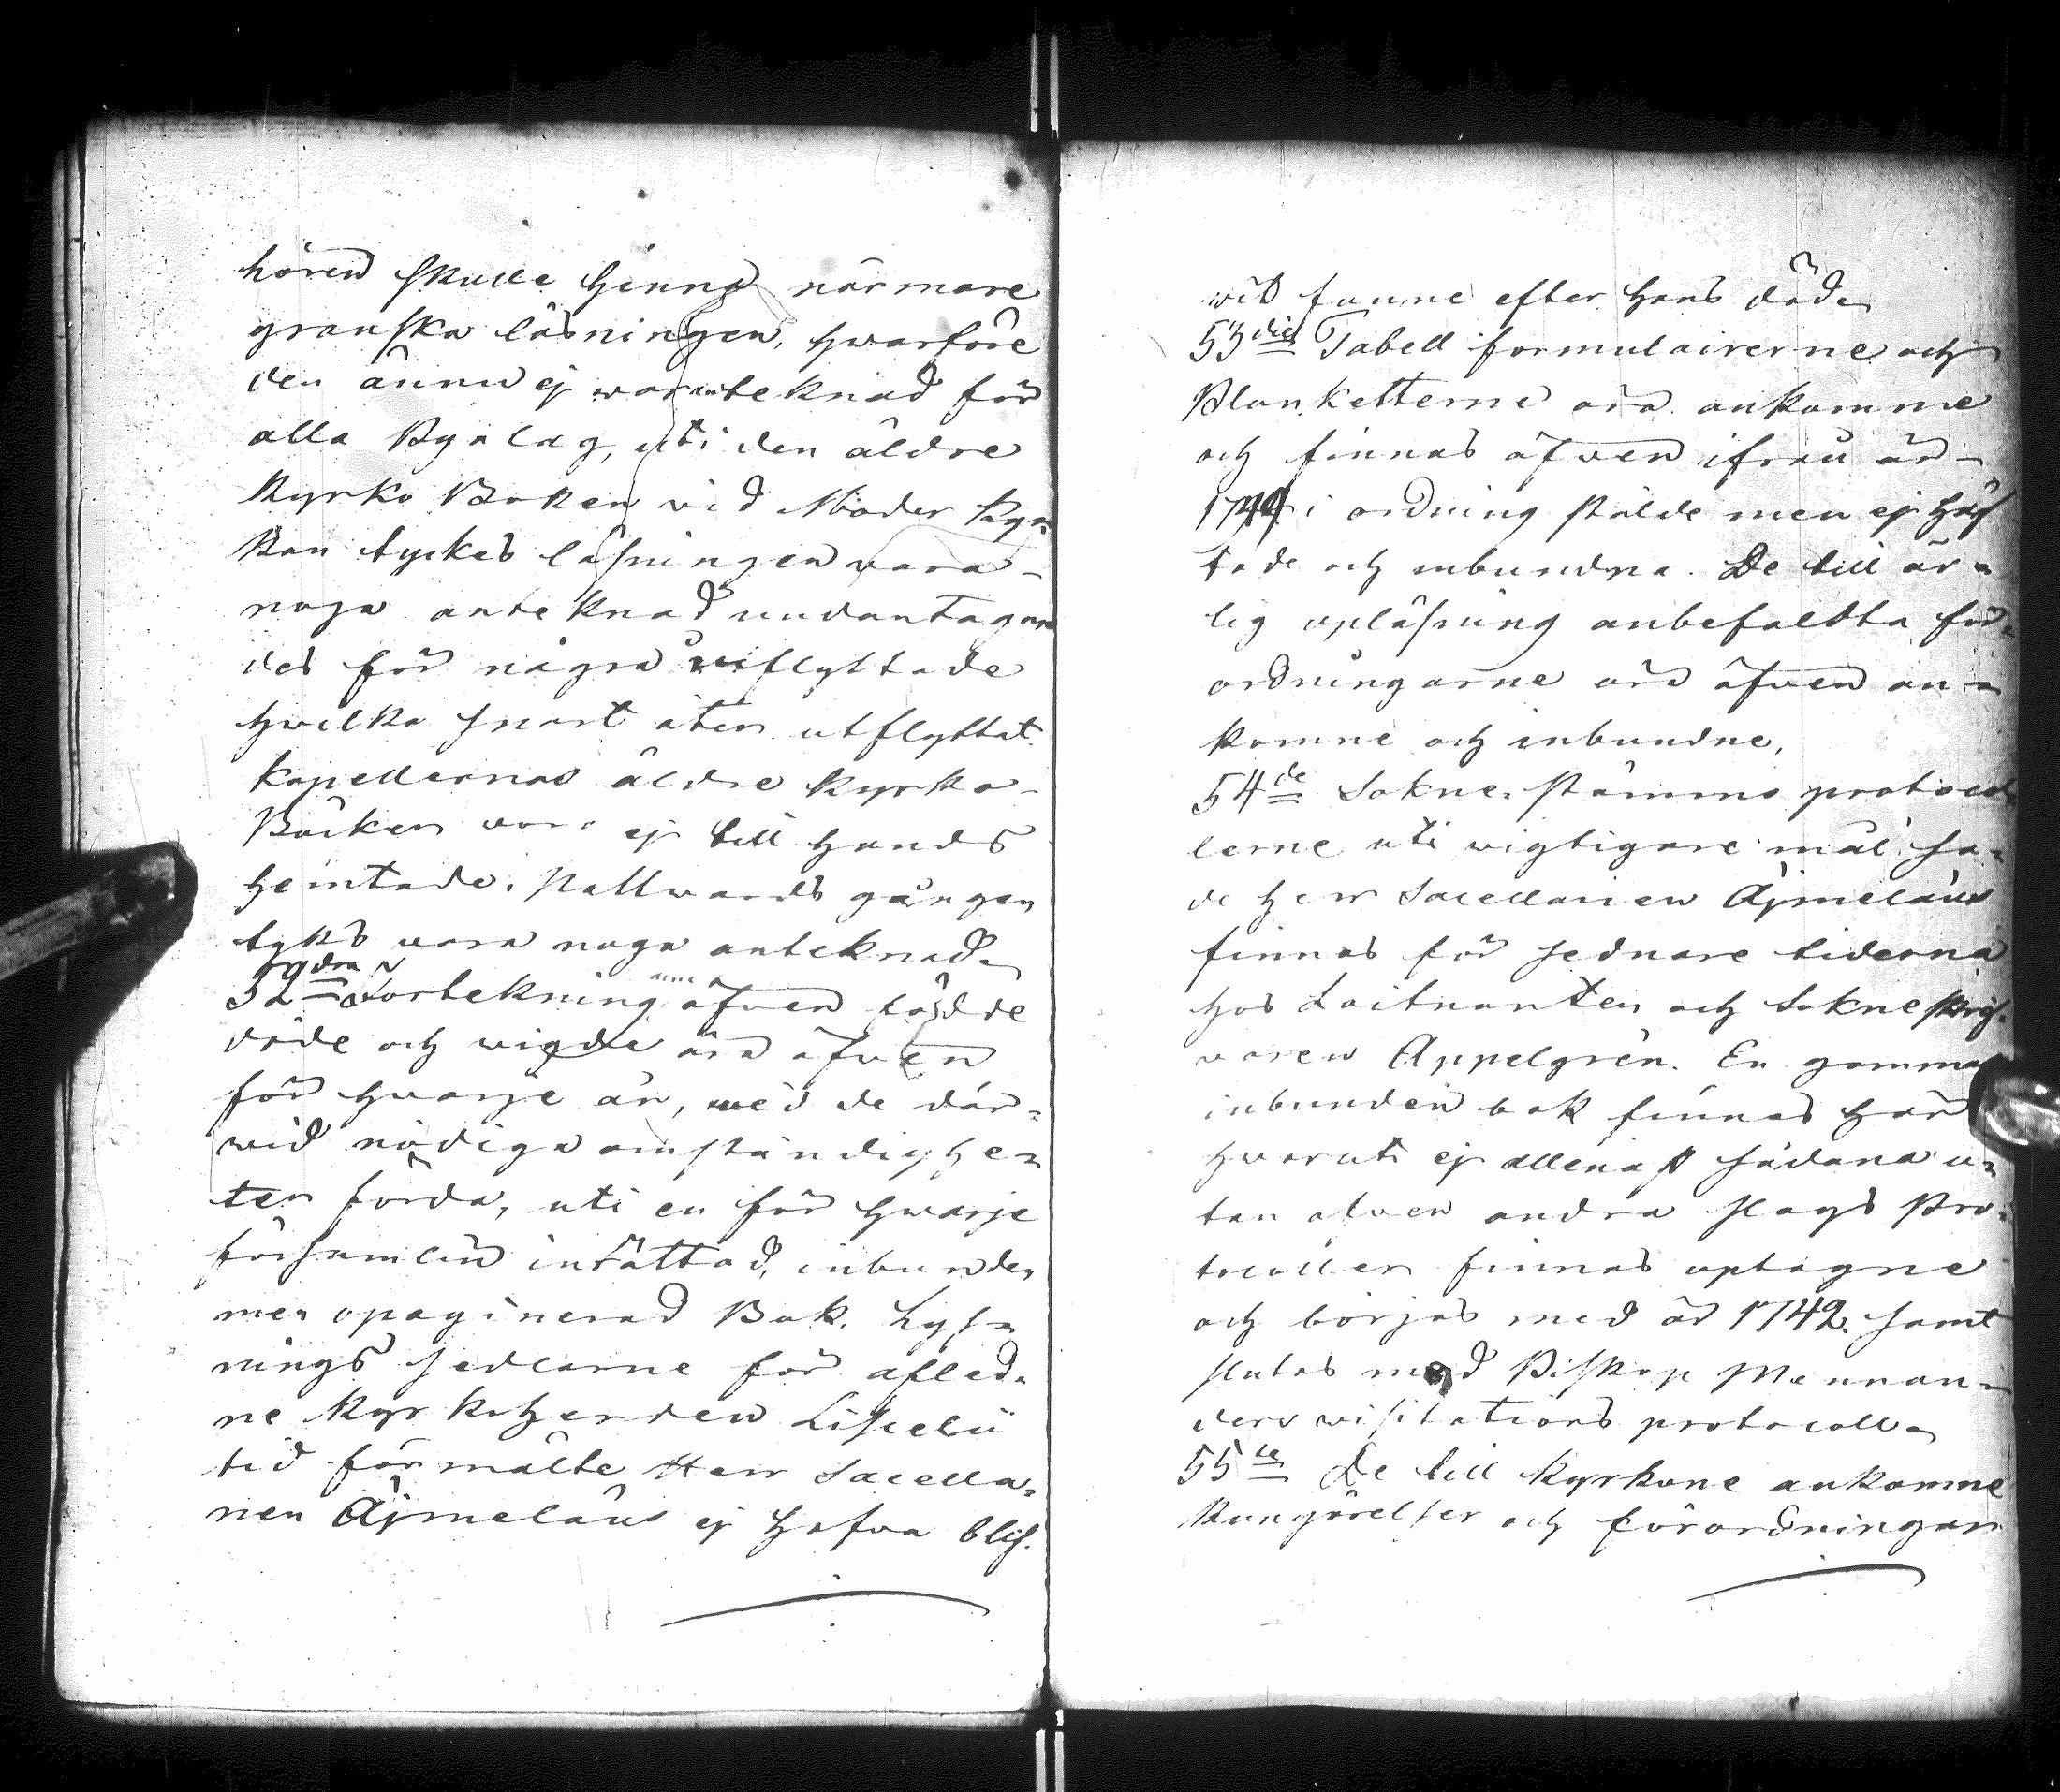 hören skulle hinna närmare
granska läsningen, hwarföre
den ännu ej war anteknad för
alla Byalag, uti den äldre
Kyrko Boken vid Moder Kyr=
kan tyckes läsningen vara
noga anteknad undantagan
des för några inflyttade
hwilka snart åter utflyttat.
Kapellernas äldre Kyrko-
Böcker voro ej till hands
hemtade. Nattwards gången
tyks vara noga anteknad.
52dra Förtekning öfwer födde
döde och wigde äro äfwen
för hwarje år, med de där=
wid nödiga omständighe=
ter förda, uti en för hwarje
församlin inrättad, inbunden
men opaginerad Bok. Lys=
nings sedlarne för afled.
ne Kyrkoherden Liscelii
tid förmälte Herr Sacella=
nen Äjmeläus ej hafva blif.
wit funne efter hans död.
53die Tabell formulairerne och
Blanketterne äro ankomne
och finnas äfwen ifrån år
i ordning stälde men ej häf
tade och inbundna. De till år=
lig upläsning anbefaldta för=
ordningarne äro äfwen an=
komne och inbundne.
54de Sokne stämmo protocol
lerne uti wigtigare mål sa=
de Herr Sacellanien Äjmeläus
finnas för sednare tiderna
hos Loitnanten och Sokneskrif=
varen Appelgrén. En gammal
inbunden bok finnes här
hwaruti ej allenast sådana u=
tan äfwen andra slags Pro=
tocoller finnas uptagne
och börjas med år 1742. samt
slutas med Biskop Mennan=
ders visitations protocoll.
55te De till Kyrkone ankomne
Kungörelser och förordningar